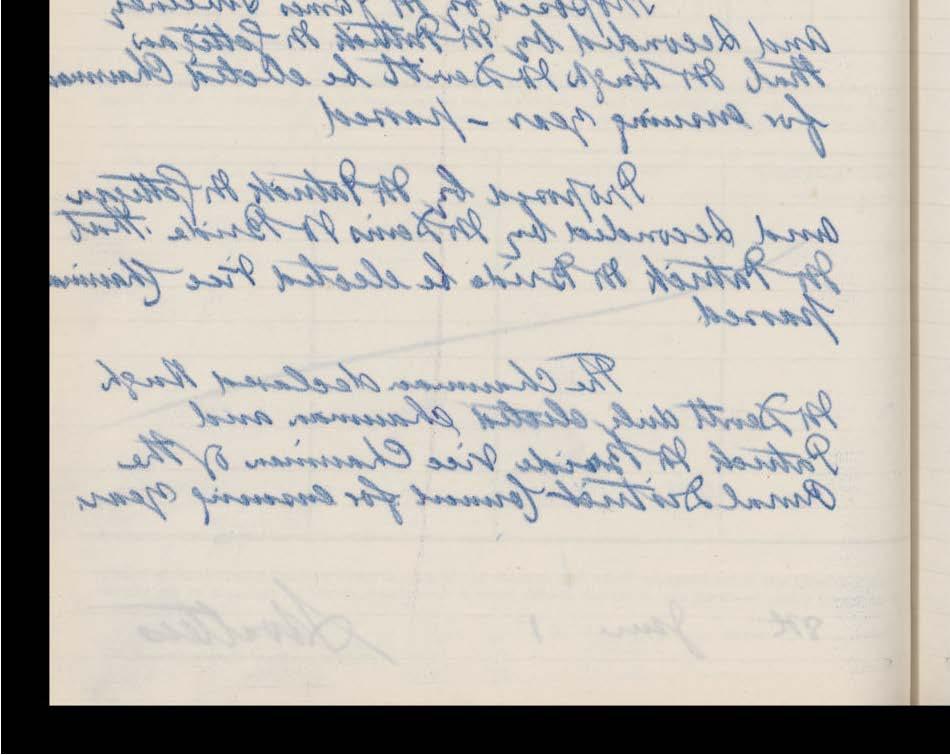 Proposed by Mr James Sweeney
and Seconded by Mr Patrick McGettigan
that Mr Hugh McDevitt be elected Chairman
for ensuing year - passed
Proposed by Mr Patrick McGettigan
and Seconded by Mr Denis McBride that
Mr Patrick McBride be elected Vice Chairman
passed
The Chairman declared Hugh
McDevitt duly elected Chairman and
Patrick McBride Vice Chairman of the
Rural District Council for ensuing year